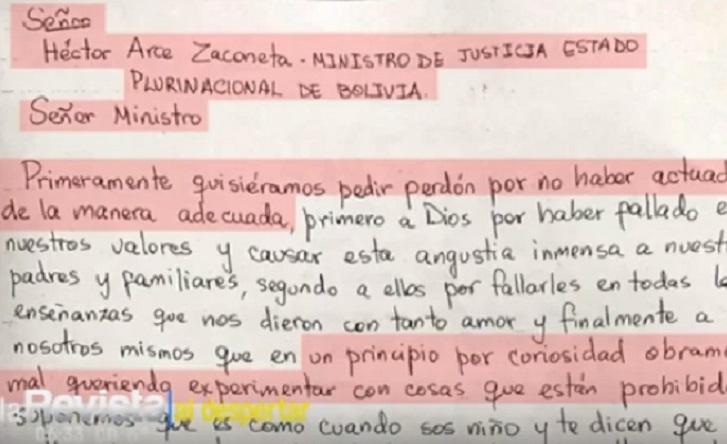 Señor
Héctor Arce Zaconeta. MINISTRO DE JUSTICIA ESTADO
PLURINACIONAL DE BOLIVIA.
Señor Ministro
Primeramente quisiéramos pedir perdón por no haber actuad
de la manera adecuada, primero a Dios por haber fallado e
nuestros valores y causar esta angustia inmensa a nuest
padres y familiares, segundo a ellos por fallarles en todas l
enseñanzas que nos dieron con tanto amor y finalmente a
nosotros mismos que en un principio por curiosidad obram
mal queriendo experimentar con cosas que están prohibid
la Revista al despertar
suponemos que es como cuando sos niño y te dicen que